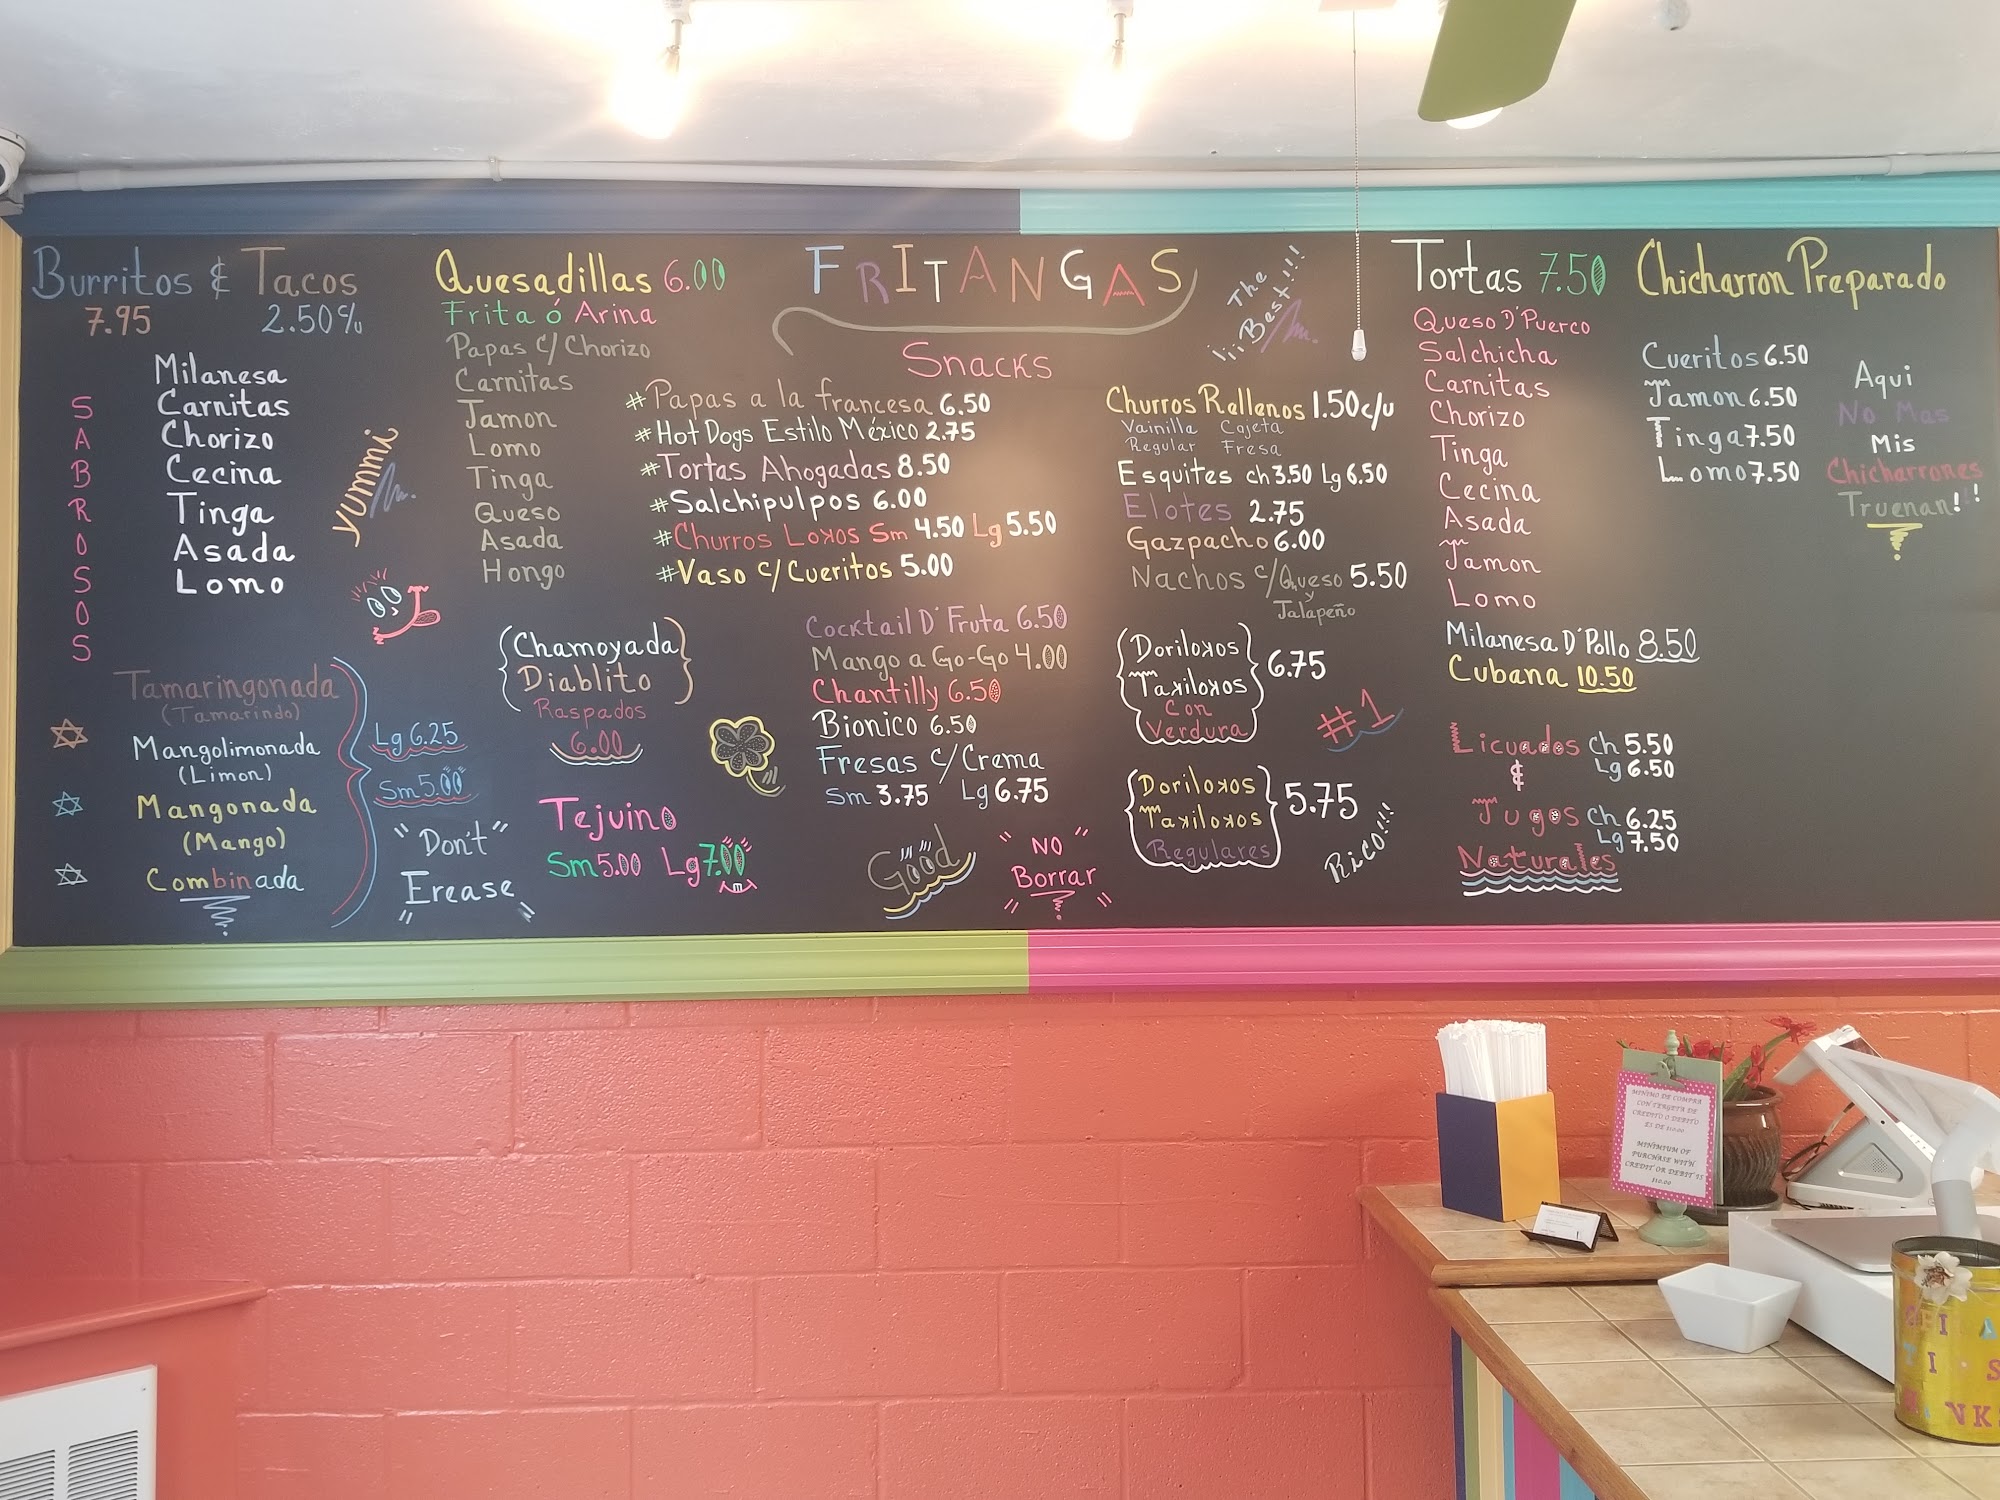 Burritos & Tacos
7.95 2.50 c/u
SABROSOS
Milanesa
Carnitas
Chorizo
Cecina
Tinga
Asada
Lomo
yummi
Tamaringonada
(Tamarindo)
Mangolimonada
(Limon)
Mangonada
(Mango)
Combinada
Lg 6.25
Sm 5.00
"Don't"
Erease
Quesadillas 6.00
Frita ó Arina
Papas c/ Chorizo
Carnitas
Jamon
Lomo
Tinga
Queso
Asada
Hongo
Chamoyada
Diablito
Raspados
6.00
Tejuino
Sm 5.00 Lg 7.00
FRITANGAS
Snacks
#Papas a la francesa 6.50
#Hot Dogs Estilo México 2.75
#Tortas Ahogadas 8.50
#Salchipulpos 6.00
#Churros Lokos Sm 4.50 Lg 5.50
#Vaso c/ Cueritos 5.00
Cocktail D' Fruta 6.50
Mango a Go-Go 4.00
Chantilly 6.50
Bionico 6.50
Fresas c/ Crema
Sm 3.75 Lg 6.75
Good
"NO"
Borrar
The
¡¡¡Best!!!
Churros Rellenos 1.50 c/u
Vainilla Cajeta
Regular Fresa
Esquites ch 3.50 Lg 6.50
Elotes 2.75
Gazpacho 6.00
Nachos c/ Queso 5.50
y
Jalapeño
Dorilokos
Takilokos 6.75
Con
Verdura
#1
Dorilokos
Takilokos 5.75
Regulares
Rico!!!
Tortas 7.50
Queso D'Puerco
Salchicha
Carnitas
Chorizo
Tinga
Cecina
Asada
Jamon
Lomo
Milanesa D'Pollo 8.50
Cubana 10.50
Licuados ch 5.50
& Lg 6.50
Jugos ch 6.25
Lg 7.50
Naturales
Chicharron Preparado
Cueritos 6.50
Jamon 6.50
Tinga 7.50
Lomo 7.50
Aqui
No Mas
Mis
Chicharrones
Truenan!!!
MINIMO DE COMPRA
CON TARGETA DE
CREDITO O DEBITO
ES DE $10.00
MINIMIUM OF
PURCHASE WITH
CREDIT OR DEBIT IS
$10.00